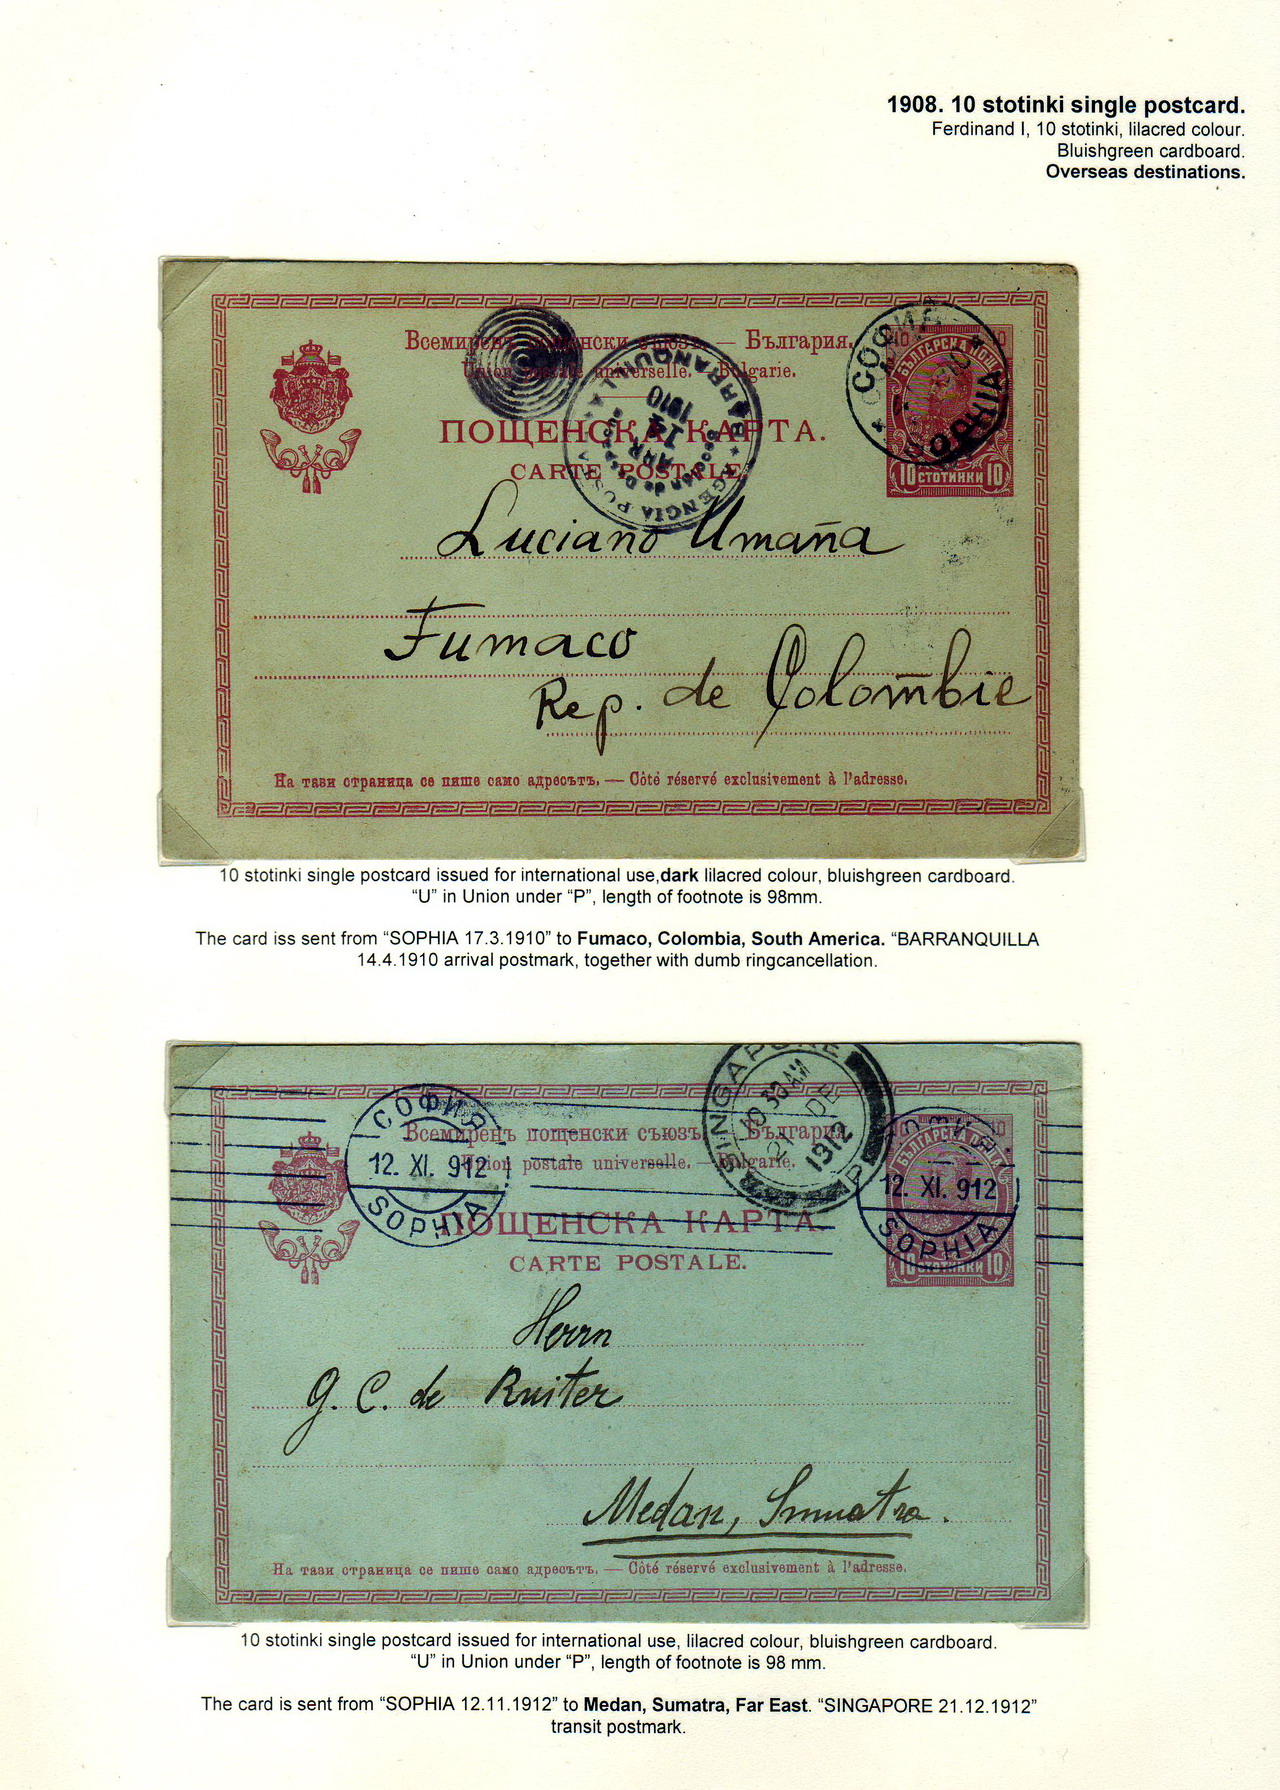 1908. 10 stotinki single postcard.
Ferdinand I, 10 stotinki, lilacred colour.
Bluishgreen cardboard.
Overseas destinations.
Всемиренъ пощенски съюзъ. — България.
Union postale universelle. — Bulgarie.
ПОЩЕНСКА КАРТА.
CARTE POSTALE
СОФИЯ
SOPHIA
БЪЛГАРСКА ПОЩА
10 СТОТИНКИ 10
AGENCIA POSTAL
BARRANQUILLA
14
ABR
1910
Luciano Umaña
Fumaco
Rep. de Colombie
На тази страница се пише само адресътъ. — Côté réservé exclusivement à l'adresse.
10 stotinki single postcard issued for international use,dark lilacred colour, bluishgreen cardboard.
“U” in Union under “P”, length of footnote is 98mm.
The card iss sent from “SOPHIA 17.3.1910” to Fumaco, Colombia, South America. “BARRANQUILLA
14.4.1910 arrival postmark, together with dumb ringcancellation.
СОФИЯ
12. XI. 912
SOPHIA
SINGAPORE
10 30 AM
21 DE
1912
Всемиренъ пощенски съюзъ. — България.
Union postale universelle. — Bulgarie.
ПОЩЕНСКА КАРТА.
CARTE POSTALE.
СОФИЯ
12. XI. 912
SOPHIA
10 СТОТИНКИ 10
Herrn
G. C. de Ruiter
Medan, Sumatra.
На тази страница се пише само адресътъ. — Côté réservé exclusivement à l'adresse.
10 stotinki single postcard issued for international use, lilacred colour, bluishgreen cardboard.
“U” in Union under “P”, length of footnote is 98 mm.
The card is sent from “SOPHIA 12.11.1912” to Medan, Sumatra, Far East. “SINGAPORE 21.12.1912”
transit postmark.